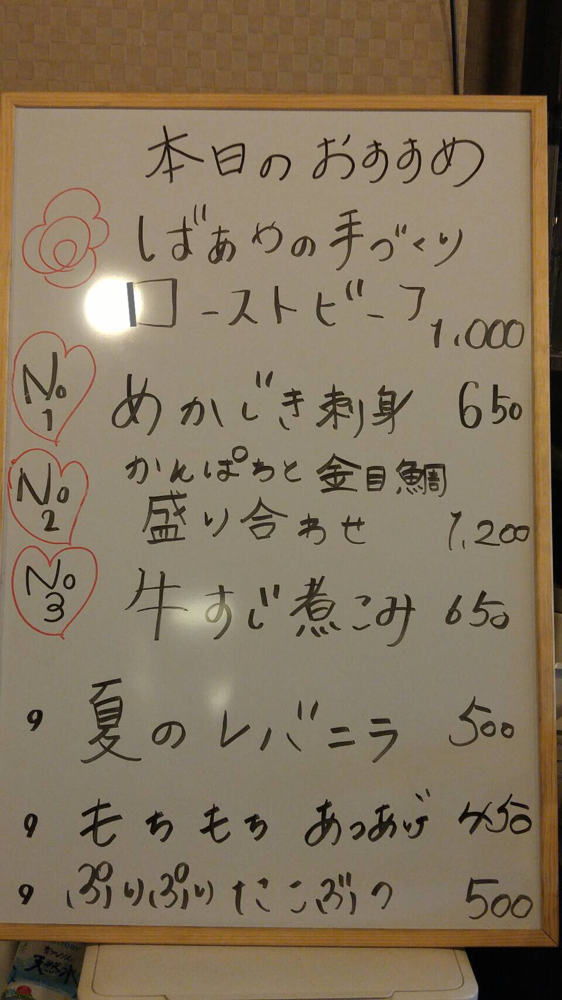 本日のおすすめ
ばあやの手づくり
ローストビーフ 1,000
No 1 めかじき刺身 650
No 2 かんぱちと金目鯛
盛り合わせ 1,200
No 3 牛すじ煮こみ 650
夏のレバニラ 500
もちもち あつあげ 450
ぷりぷり たこぶつ 500
天然水